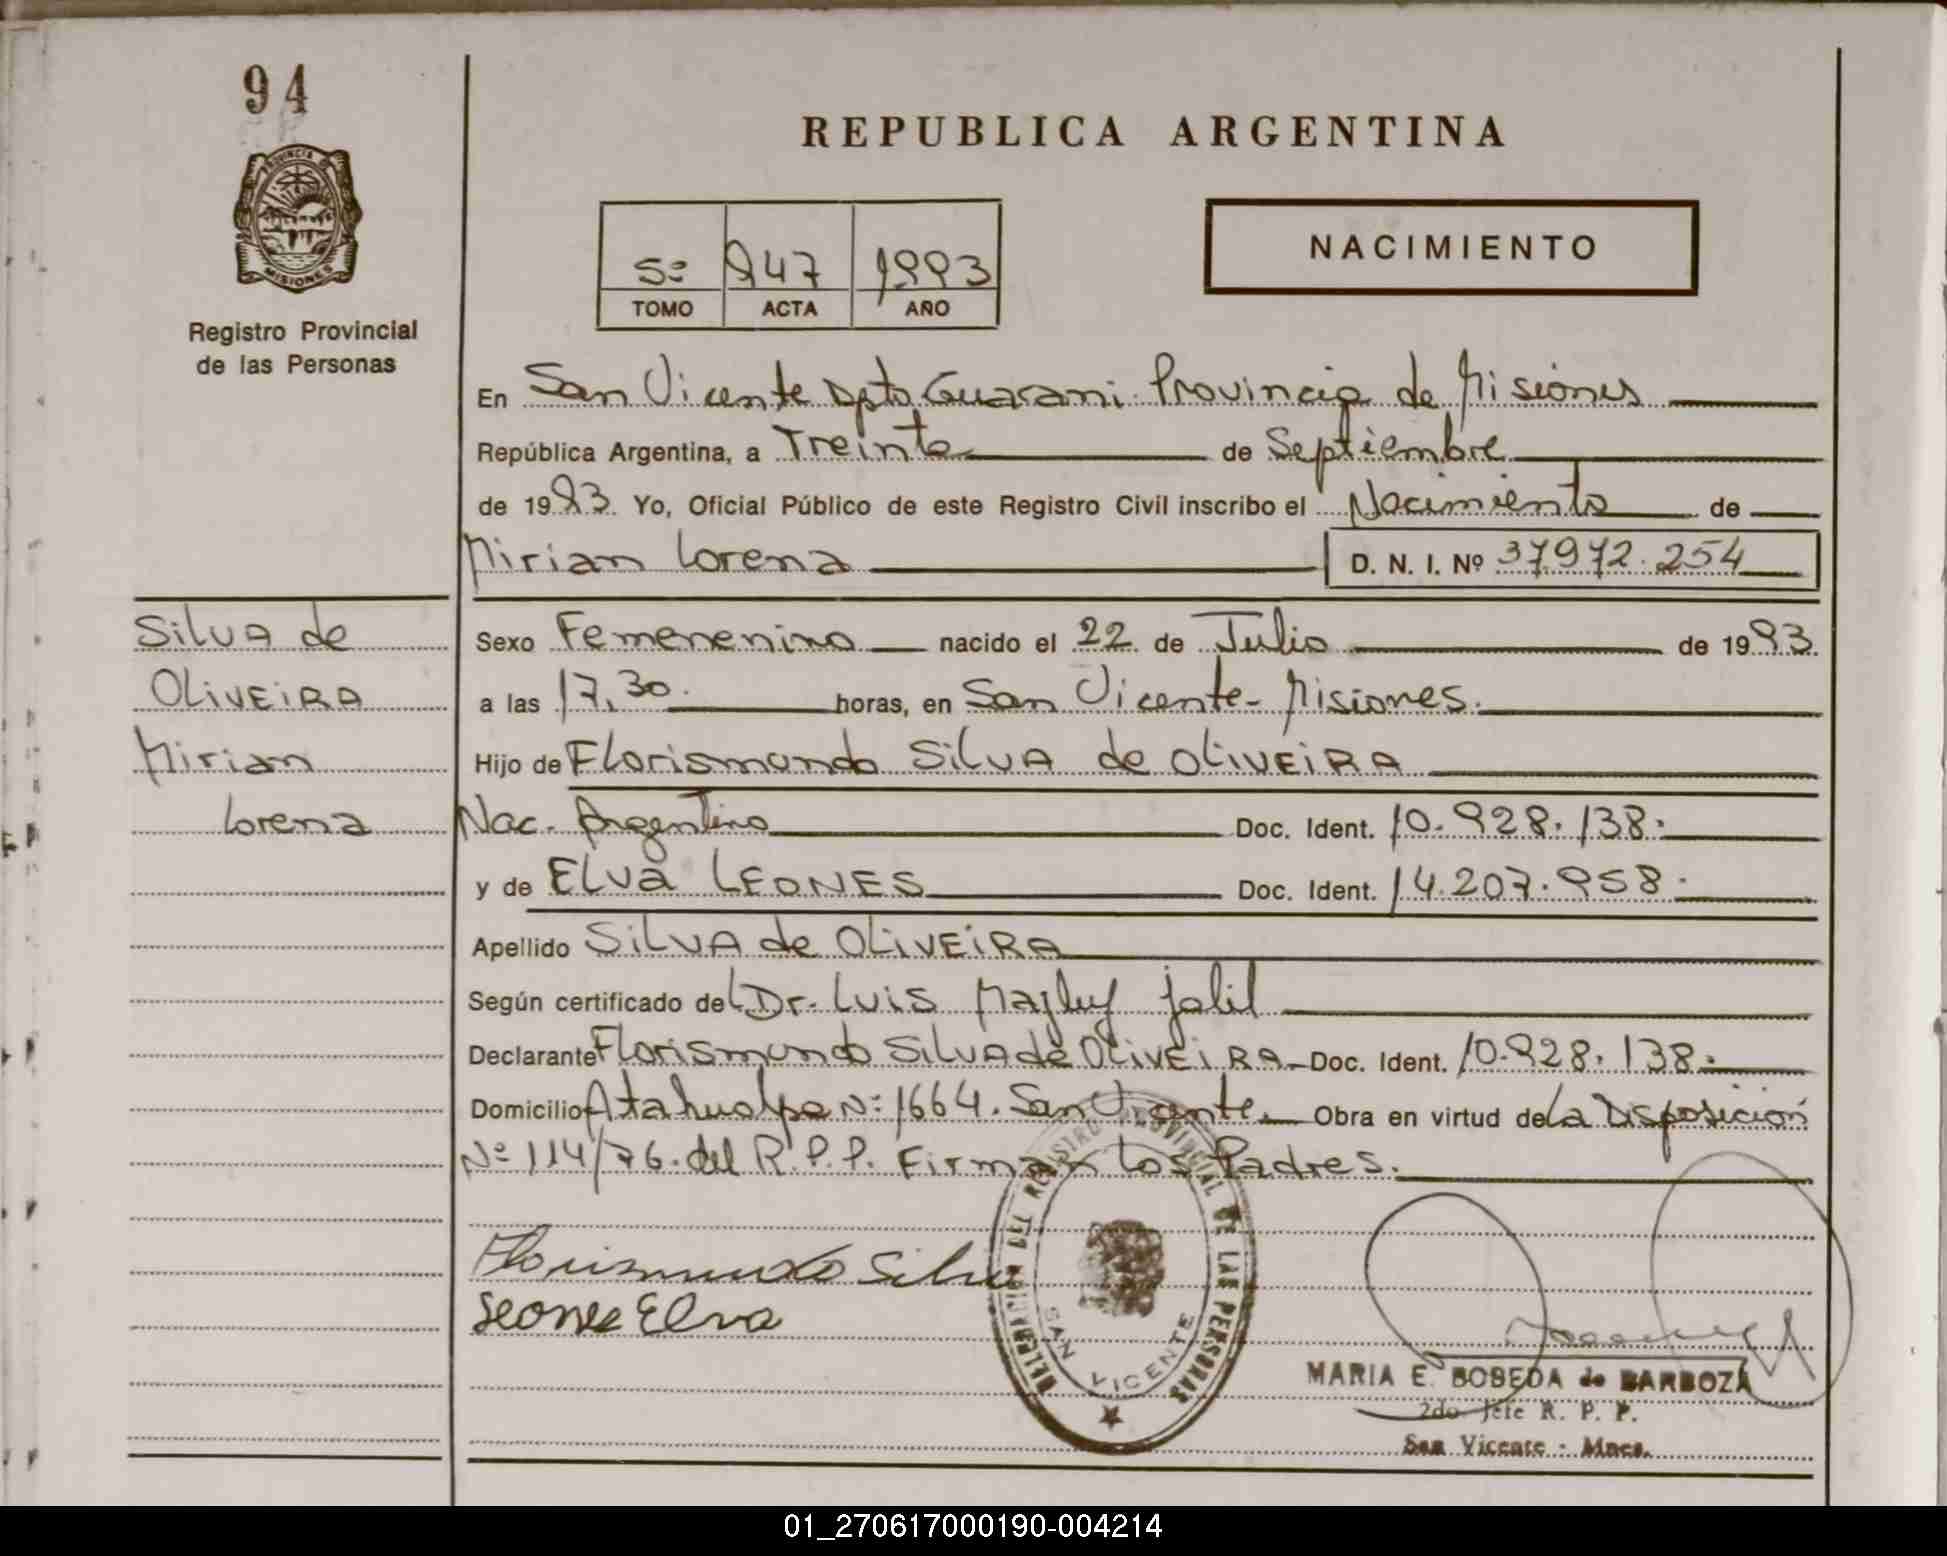 94
PROVINCIA DE
MISIONES
Registro Provincial
de las Personas
REPUBLICA ARGENTINA
5º 947 1993
TOMO ACTA AÑO
NACIMIENTO
En San Vicente Dpto Guarani. Provincia de Misiones
República Argentina, a Treinta de Septiembre
de 1993. Yo, Oficial Público de este Registro Civil inscribo el Nacimiento de
Mirian Lorena D. N. I. Nº 37972.254
Silva de
OLiVEiRA
Mirian
Lorena
Sexo Femenenino nacido el 22 de Julio de 1993.
a las 17,30. horas, en San Vicente- Misiones.
Hijo de Florismundo SiLVA de OLiVEiRA
Nac. Argentino Doc. Ident. 10.928.138.
y de ELva LEONES Doc. Ident. 14.207.958.
Apellido SiLVA de OLiVEiRA
Según certificado del Dr. Luis Jalil
Declarante Florismundo SiLVA de OLiVEiRA Doc. Ident. 10.928.138.
Domicilio Atahualpa Nº 1664. San Vicente. Obra en virtud de La Disposición
Nº 114/76. del R.P.P. Firman Los Padres.
Florismundo Silva
Leones Elva
DELEGACION DEL REGISTRO PROVINCIAL DE LAS PERSONAS
SAN VICENTE
MARIA E. BOBEDA de BARBOZA
2do Jefe R. P. P.
San Vicente - Mnes.
01_270617000190-004214